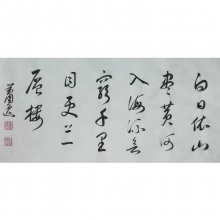 白日依山
盡黃河
入海流欲
窮千里
目更上一
層樓